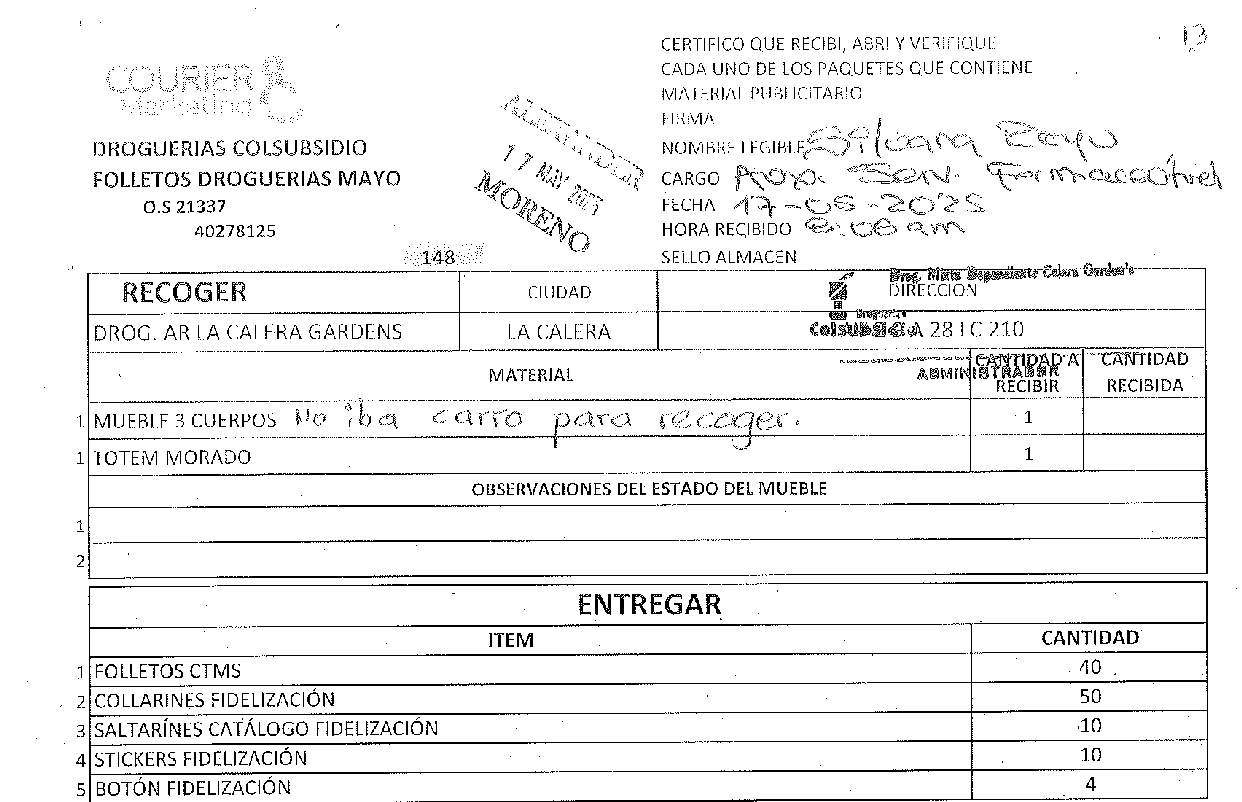 13
COURIER
Marketing
DROGUERIAS COLSUBSIDIO
FOLLETOS DROGUERIAS MAYO
O.S 21337
40278125
148
ALEXANDER
17 MAY 2025
MORENO
CERTIFICO QUE RECIBI, ABRI Y VERIFIQUE
CADA UNO DE LOS PAQUETES QUE CONTIENE
MATERIAL PUBLICITARIO
FIRMA
NOMBRE LEGIBLE
CARGO Aux. Serv.
FECHA 17-05-2025
HORA RECIBIDO 8:08 am
SELLO ALMACEN
RECOGER CIUDAD DIRECCION
DROG. AR LA CALERA GARDENS LA CALERA 28 LC 210
Colsubsidio
ADMINISTRADOR
MATERIAL CANTIDAD A RECIBIR CANTIDAD RECIBIDA
1 MUEBLE 3 CUERPOS No iba carro para recoger. 1
1 TOTEM MORADO 1
OBSERVACIONES DEL ESTADO DEL MUEBLE
1
2
ENTREGAR
ITEM CANTIDAD
1 FOLLETOS CTMS 40
2 COLLARINES FIDELIZACIÓN 50
3 SALTARÍNES CATÁLOGO FIDELIZACIÓN 10
4 STICKERS FIDELIZACIÓN 10
5 BOTÓN FIDELIZACIÓN 4